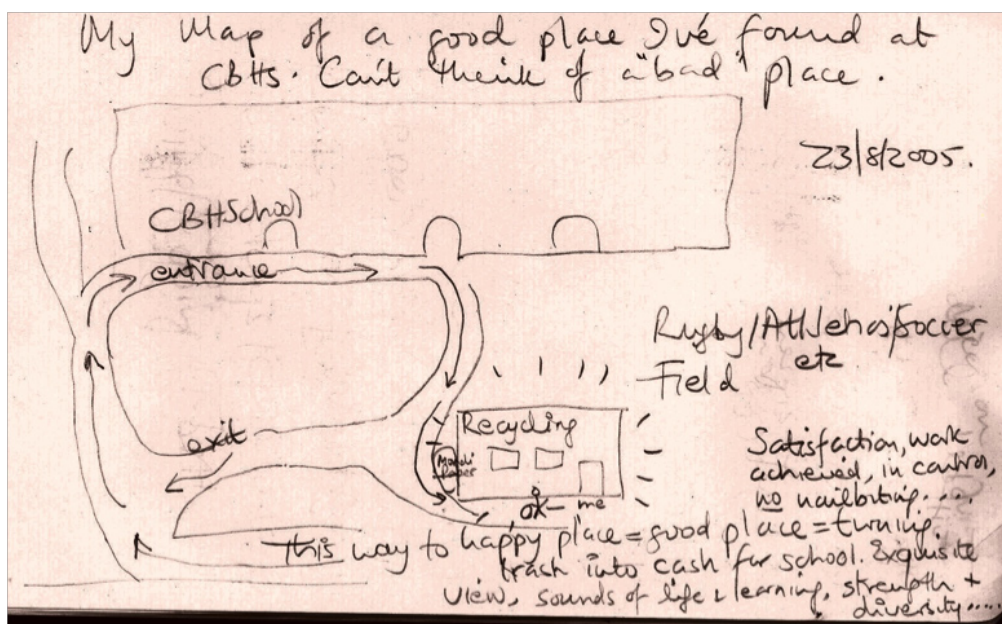 My Map of a good place I've found at
CBHS. Can't think of a "bad" place.
23/8/2005.
CBHSchool
entrance
Rugby/Athletics/Soccer
etc
Field
exit
Recycling
Mondi
Paper
me
Satisfaction, work
achieved, in control,
no nailbiting.....
This way to happy place = good place = turning
trash into cash for school. Exquisite
view, sounds of life & learning, strength +
diversity.....